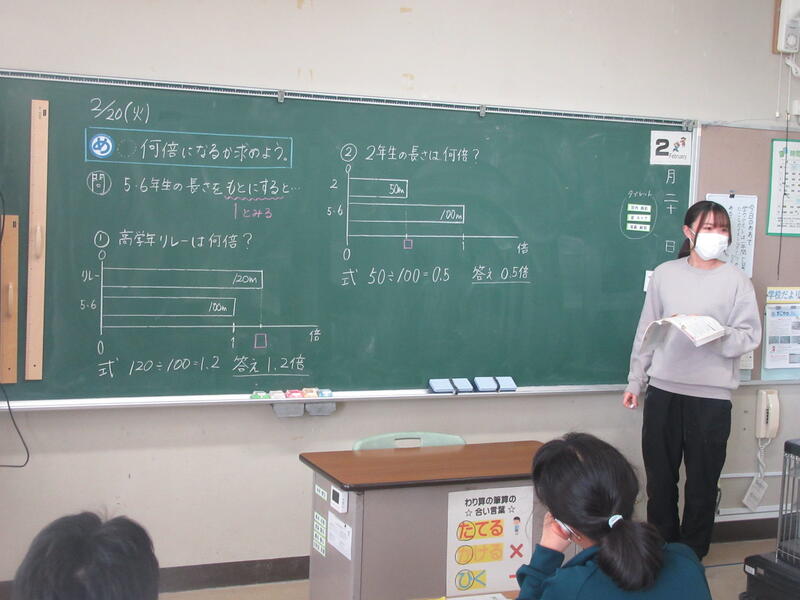 2/20(火)
め 何倍になるか求めよう。
問 5・6年生の長さをもとにすると…
1とみる
① 高学年リレーは何倍?
リレー 120m
5・6 100m
0 1 □ 倍
式 120÷100=1.2 答え 1.2倍
② 2年生の長さは何倍?
0
2 50m
5・6 100m
0 □ 1 倍
式 50÷100=0.5 答え 0.5倍
2
February
月
二十
日
わり算の筆算の
☆合い言葉☆
たてる
かける ×
ひく −
学校だより